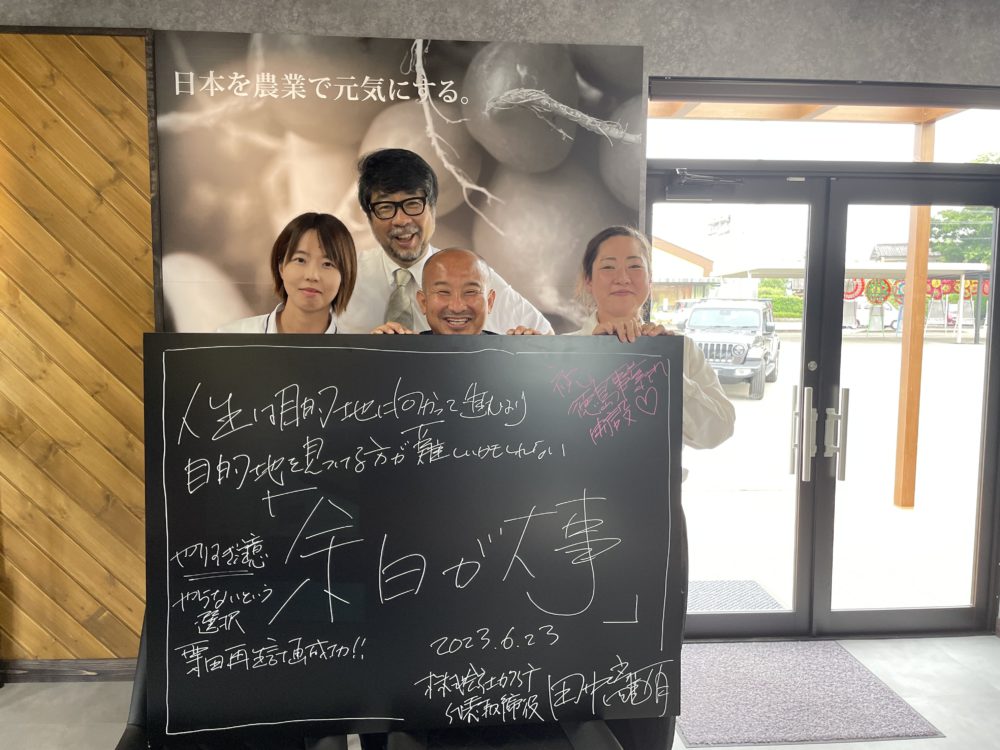 日本を農業で元気にする。
人生は目的地に向かって進むより
目的地を見つける方が難しいかもしれない
「余白が大事」
祝
徳島事業所
開設♡
やりすぎ注意
やらないという
選択
再生計画成功!!
2023.6.23
株式会社
代表取締役 田中